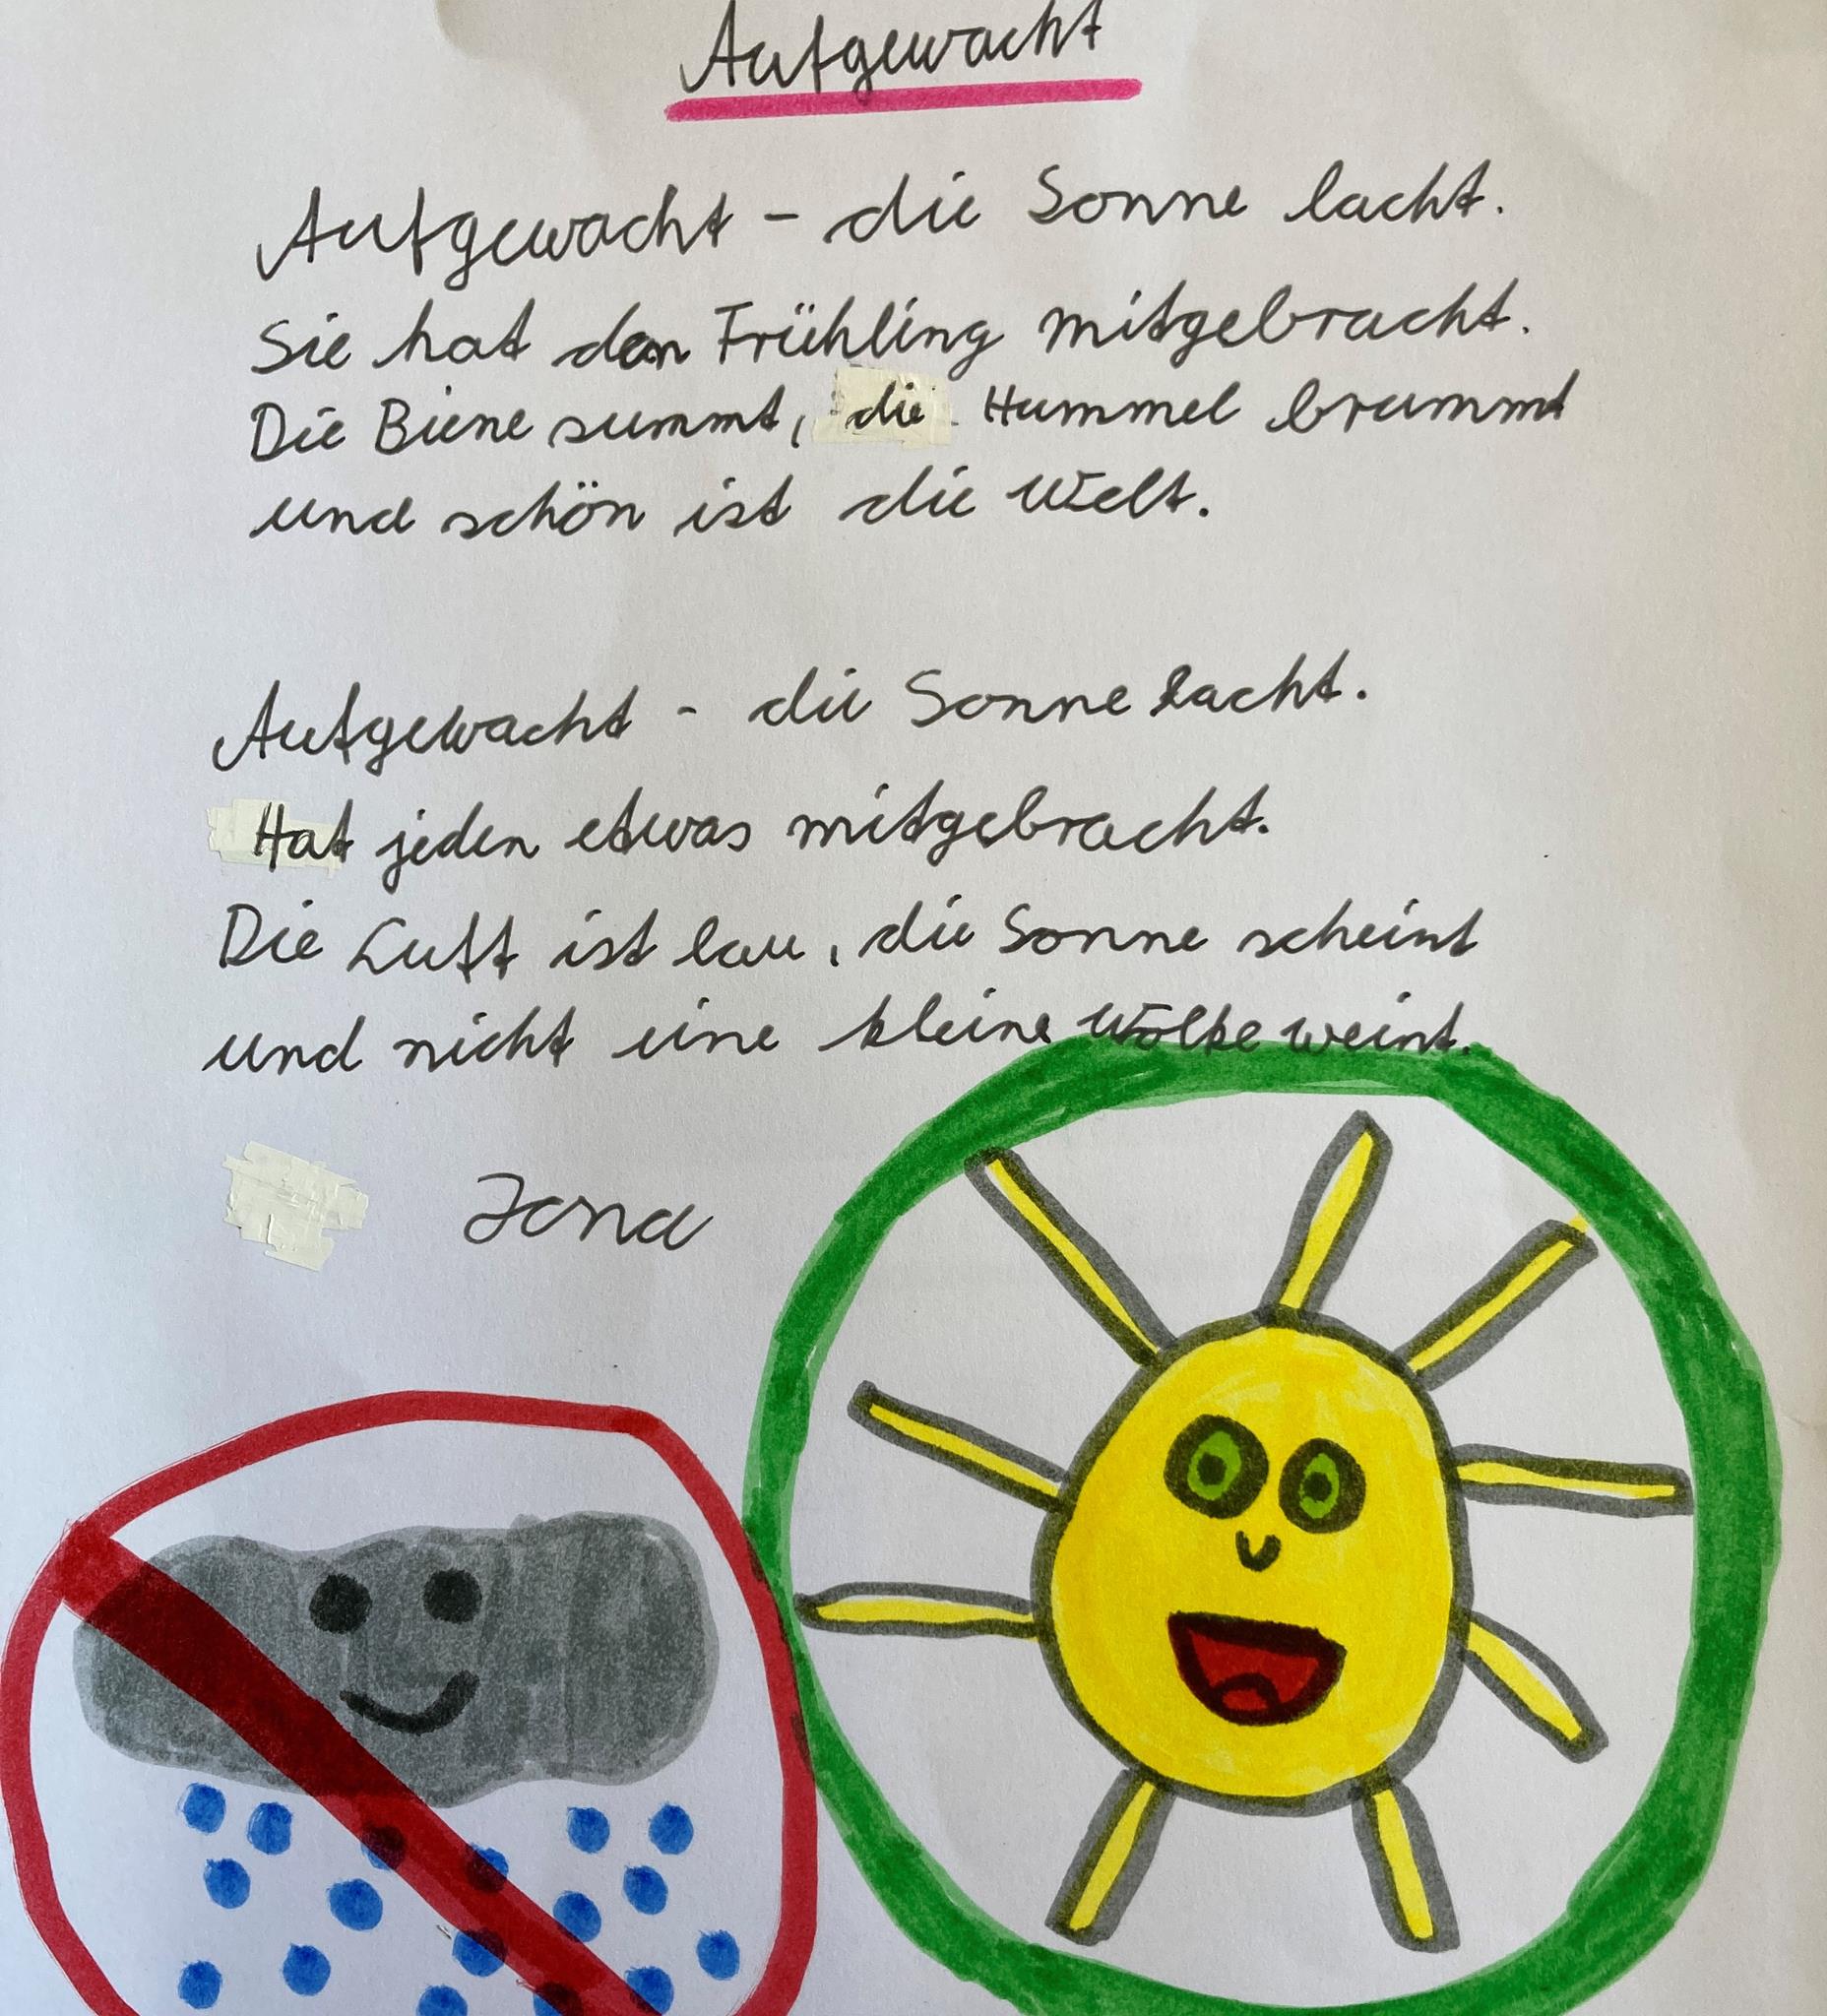 Aufgewacht
Aufgewacht - die Sonne lacht.
Sie hat den Frühling mitgebracht.
Die Biene summt, die Hummel brummt
und schön ist die Welt.
Aufgewacht - die Sonne lacht.
Hat jeden etwas mitgebracht.
Die Luft ist lau, die Sonne scheint
und nicht eine kleine Wolke weint.
Jona